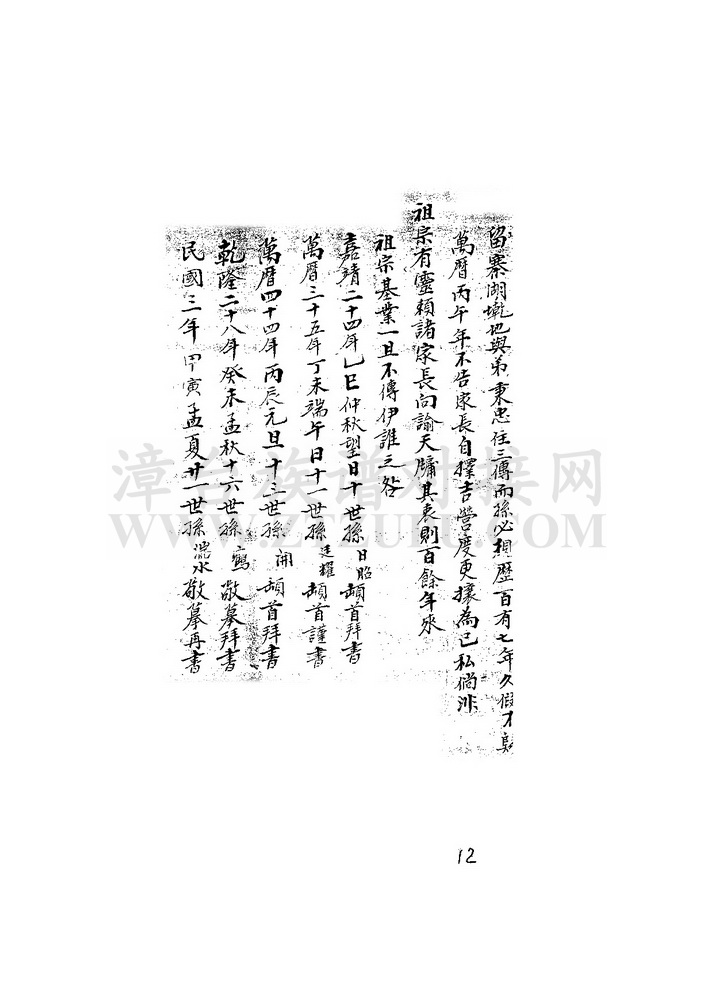 留寨湖墘也與弟秉忠住三傳而孫必桓歷百有七年久假不
萬曆丙午年不告家長自擇吉營度更攘為己私倘非
祖宗有靈賴諸家長向諭天牖其衷則百餘年來
祖宗基業一旦不傳伊誰之咎
嘉靖二十四年乙巳仲秋望日十世孫日昭頓首拜書
萬曆三十五年丁未端午日十一世孫廷耀頓首謹書
萬曆四十四年丙辰元旦十三世孫開頓首拜書
乾隆二十八年癸未孟秋十六世孫敬摹拜書
民國三年甲寅孟夏廿一世孫流水敬摹再書
漳台族谱对接网
WWW.ZTZUPU.COM
12